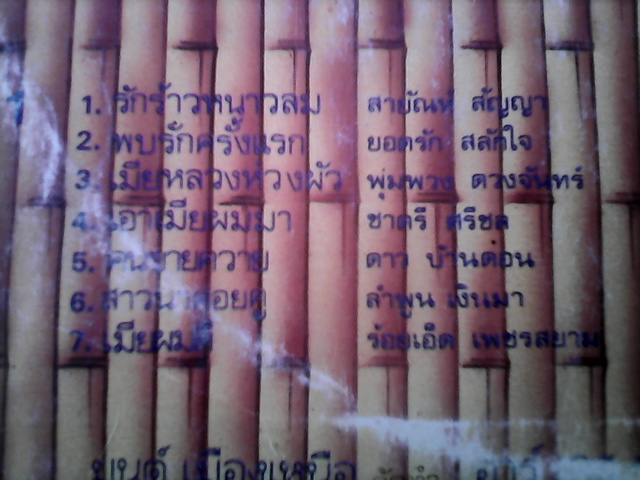 1. รักร้าวหนาวลม สายัณห์ สัญญา
2. พบรักครั้งแรก ยอดรัก สลักใจ
3. เมียหลวงหวงผัว พุ่มพวง ดวงจันทร์
4. เอาเมียผมมา ชาตรี ศรีชล
5. คนขายควาย ดาว บ้านดอน
6. สาวนาคอยคู่ ลำพูน เงินมา
7. เมียผมดี ร้อยเอ็ด เพชรสยาม
ยนต์ เมืองเหนือ